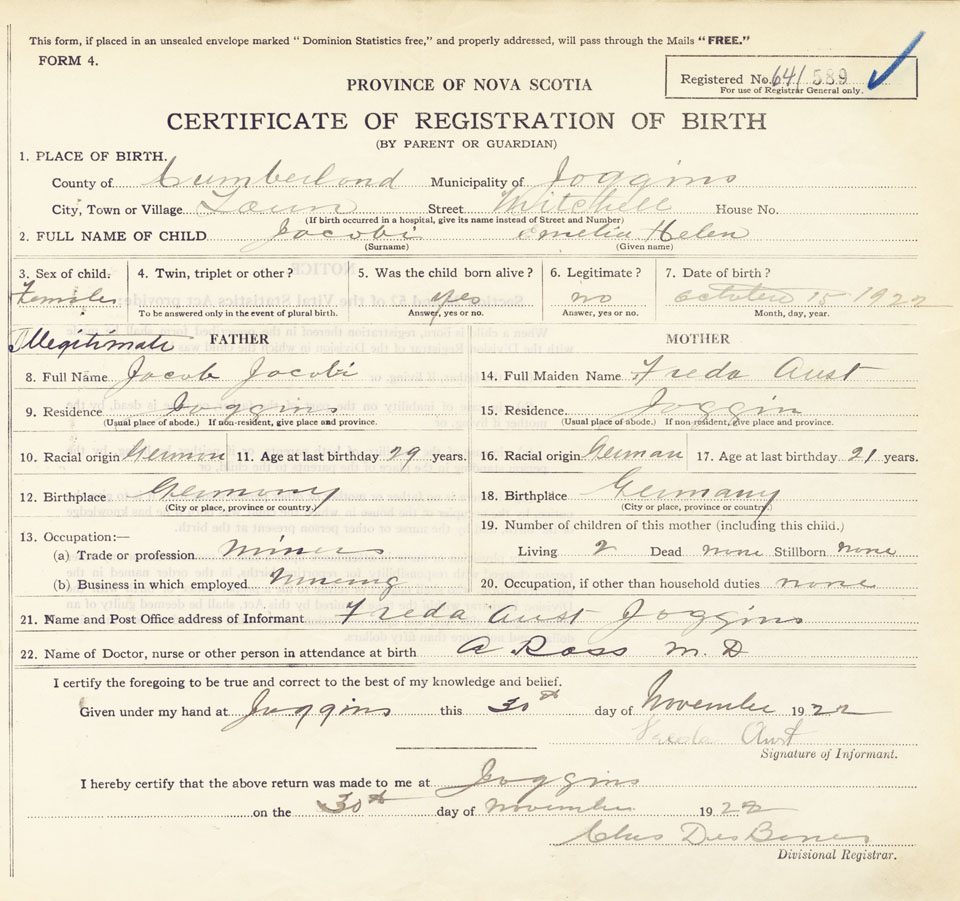 This form, if placed in an unsealed envelope marked "Dominion Statistics free," and properly addressed, will pass through the Mails "FREE."
FORM 4.
PROVINCE OF NOVA SCOTIA
Registered No. 641 589
For use of Registrar General only.
CERTIFICATE OF REGISTRATION OF BIRTH
(BY PARENT OR GUARDIAN)
1. PLACE OF BIRTH.
County of Cumberland Municipality of Joggins
City, Town or Village Town Street Mitchell House No.
(If birth occurred in a hospital, give its name instead of Street and Number)
2. FULL NAME OF CHILD Jacobi Emelia Helen
(Surname) (Given name)
3. Sex of child. 4. Twin, triplet or other? 5. Was the child born alive? 6. Legitimate? 7. Date of birth?
Female yes no October 15 1922
To be answered only in the event of plural birth. Answer, yes or no. Answer, yes or no. Month, day, year.
Illegitimate FATHER MOTHER
8. Full Name Jacob Jacobi 14. Full Maiden Name Freda Aust
9. Residence Joggins 15. Residence Joggin
(Usual place of abode.) If non-resident, give place and province. (Usual place of abode.) If non-resident, give place and province.
10. Racial origin German 11. Age at last birthday 29 years. 16. Racial origin German 17. Age at last birthday 21 years.
12. Birthplace Germany 18. Birthplace Germany
(City or place, province or country.) (City or place, province or country.)
13. Occupation:— 19. Number of children of this mother (including this child.)
(a) Trade or profession miner Living 2 Dead none Stillborn none
(b) Business in which employed mining 20. Occupation, if other than household duties none
21. Name and Post Office address of Informant Freda Aust Joggins
22. Name of Doctor, nurse or other person in attendance at birth A Ross M.D
I certify the foregoing to be true and correct to the best of my knowledge and belief.
Given under my hand at Joggins this 30th day of November 1922
Freda Aust
Signature of Informant.
I hereby certify that the above return was made to me at Joggins
on the 30th day of November 1922
Chas
Divisional Registrar.